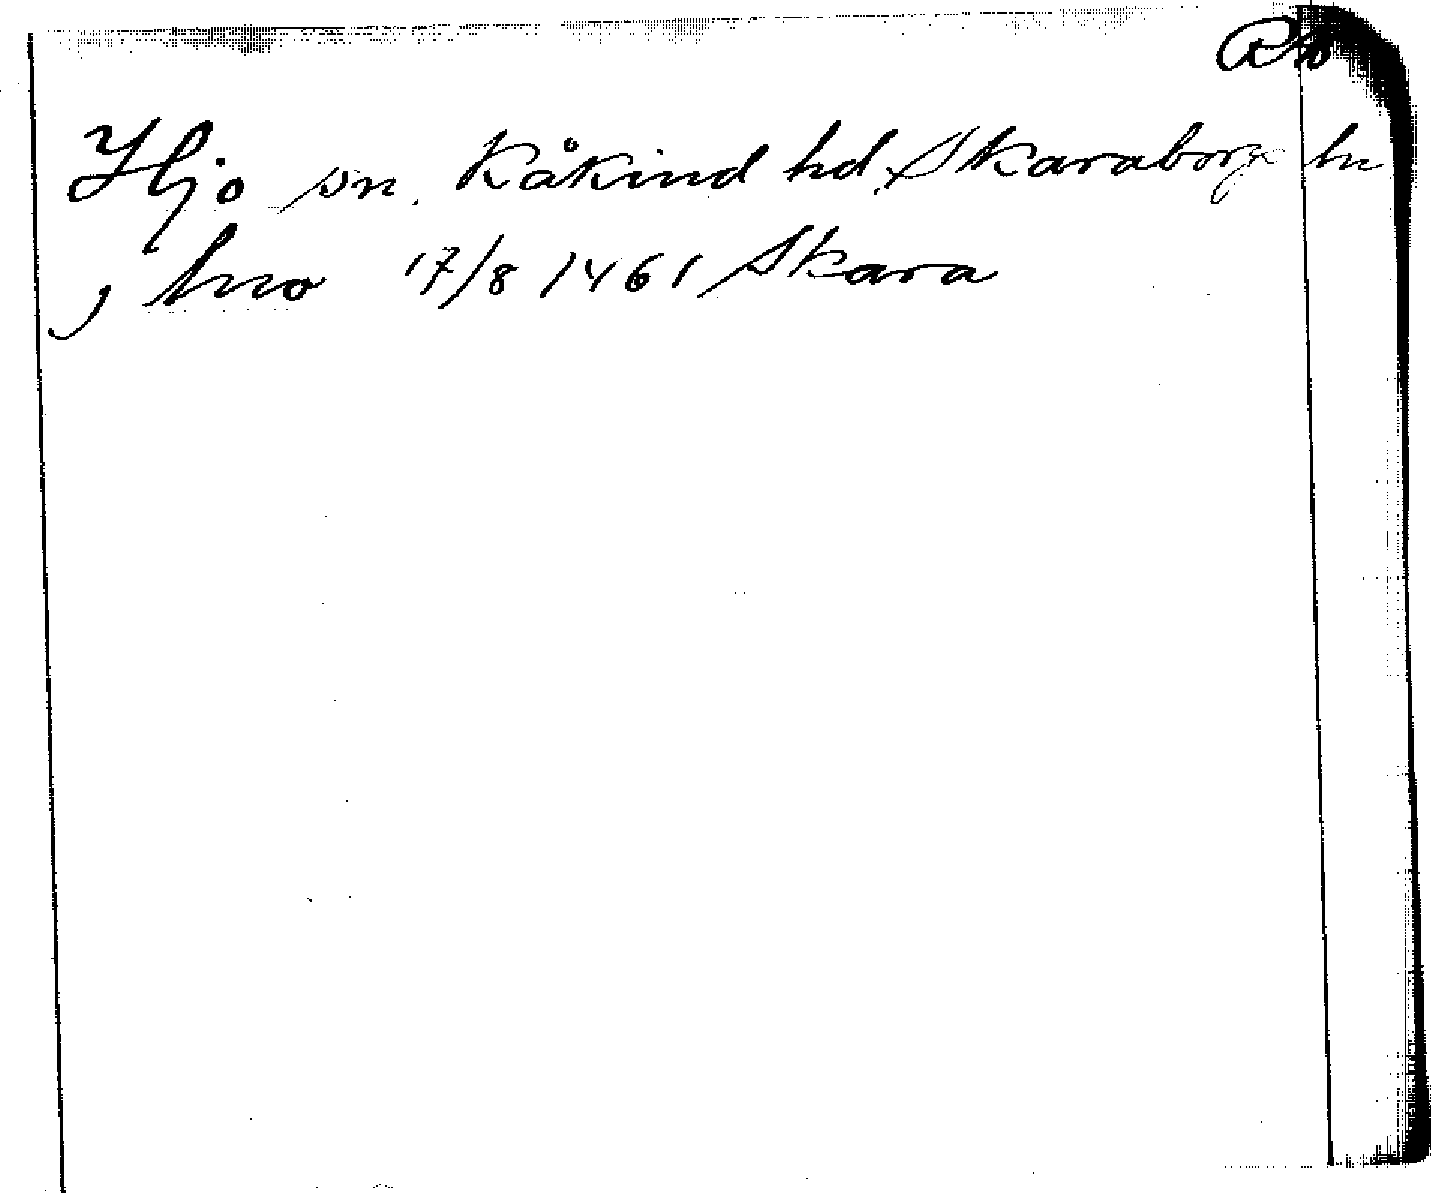 Hjo sn. Kåkind hd, Skaraborgs ln
j hwo 17/8 1461 Skara